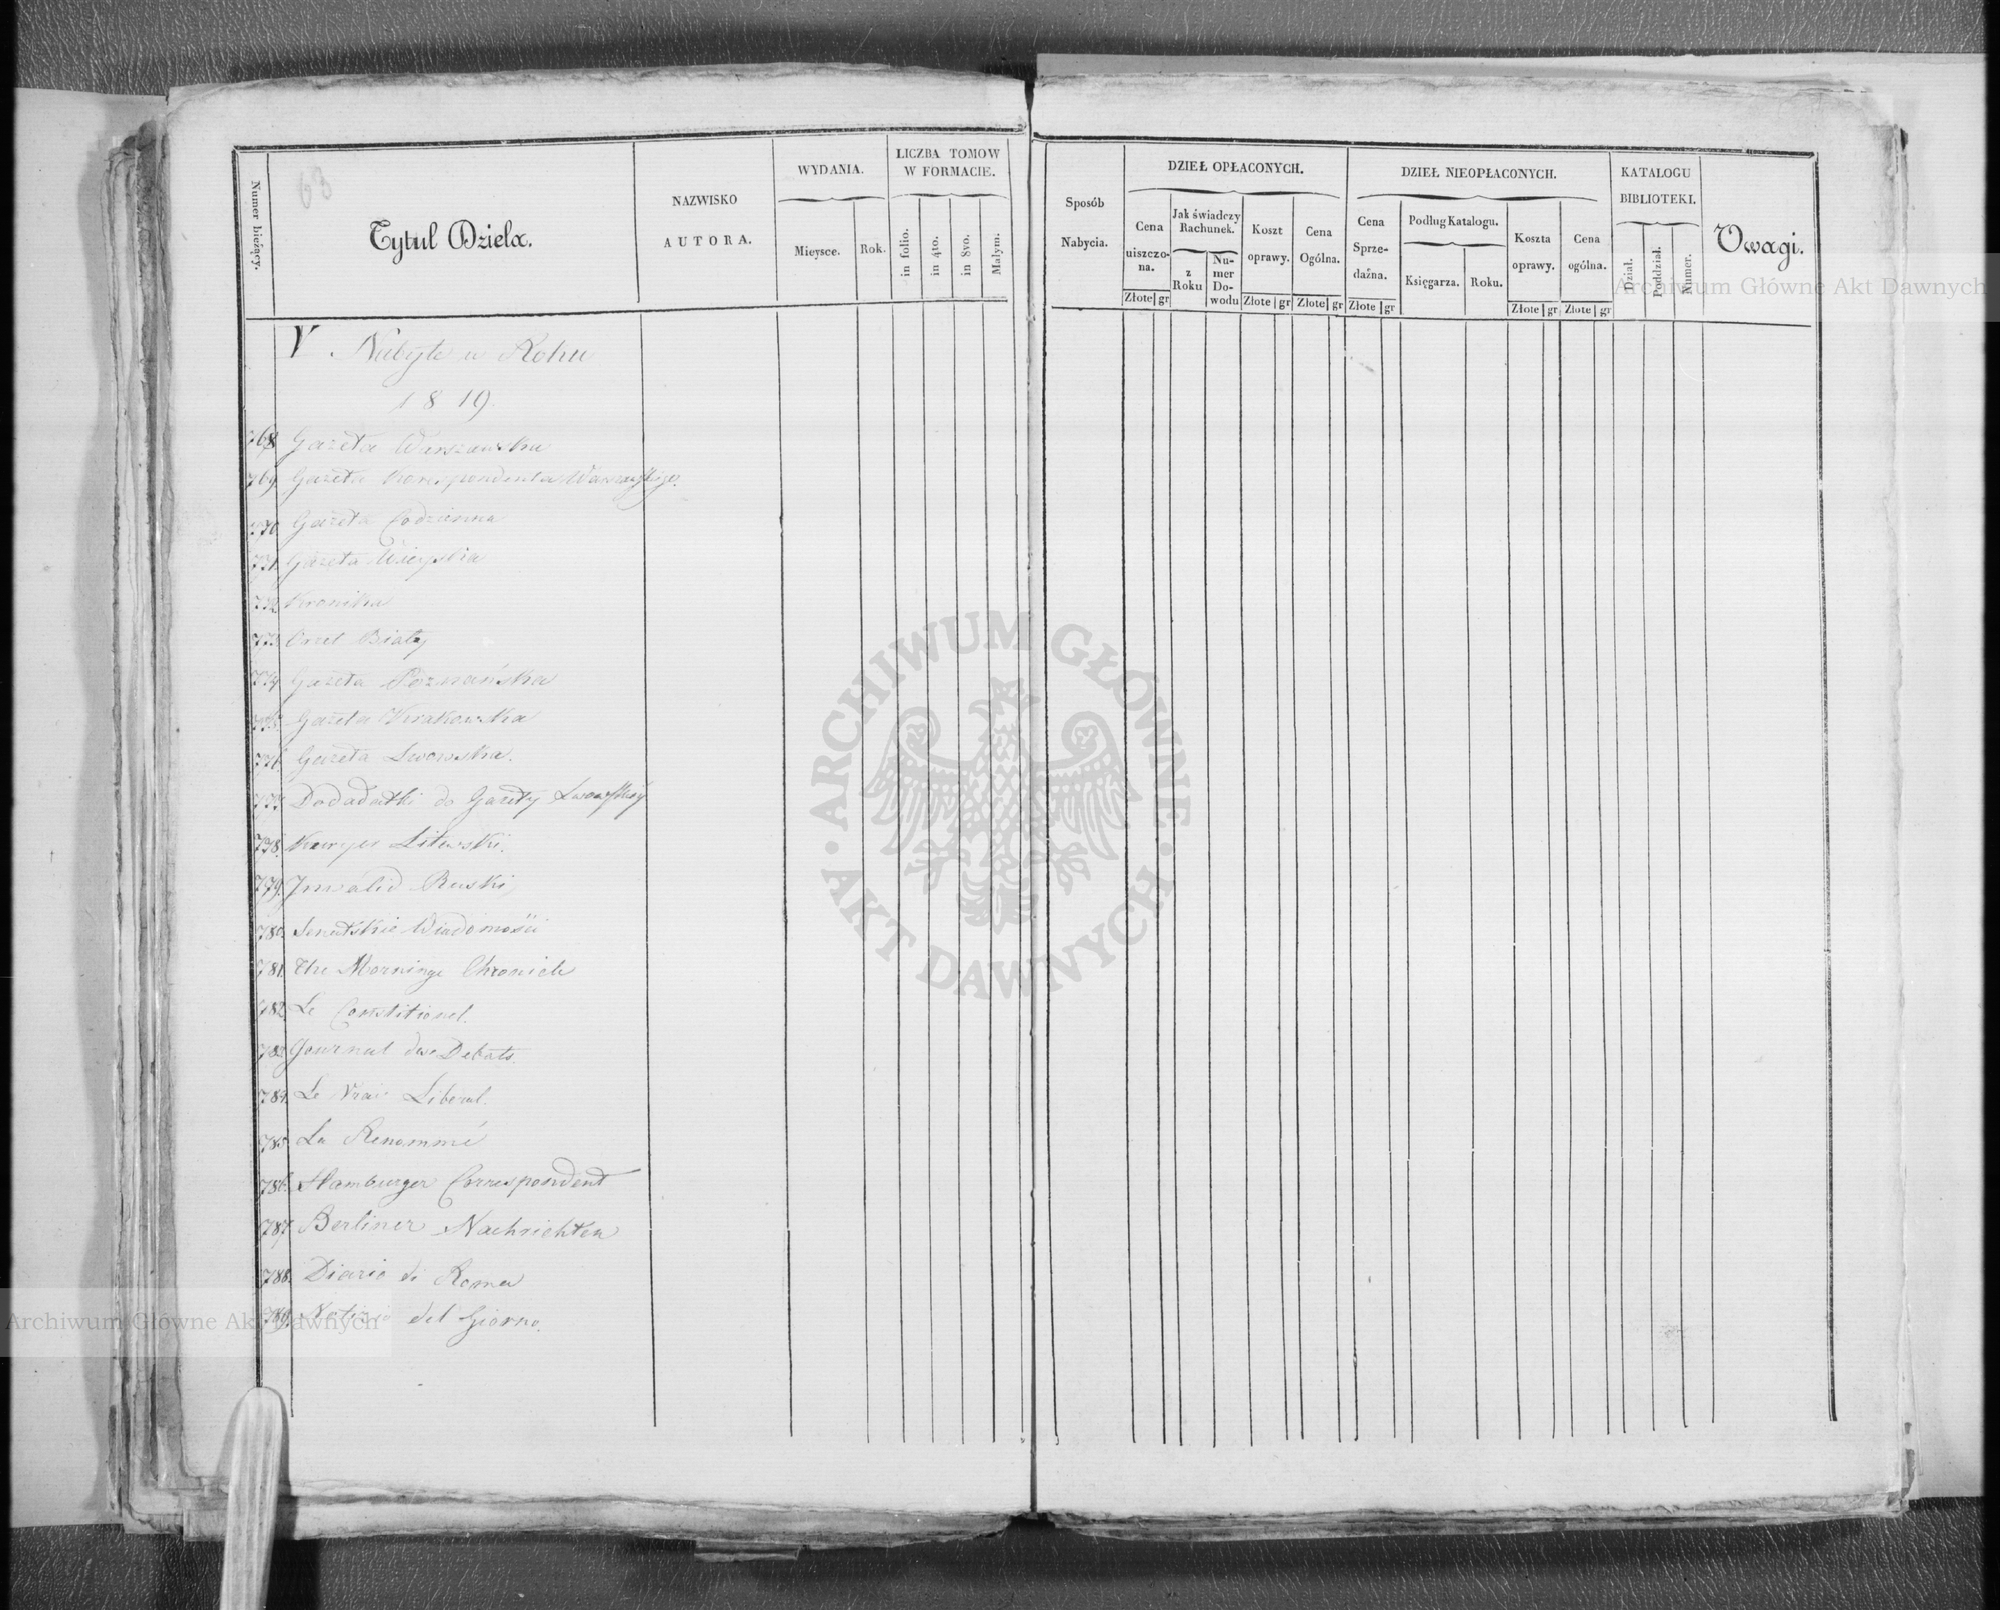 63
Numer bieżący.
Tytuł Dzieła.
NAZWISKO
AUTORA.
WYDANIA.
Mieysce.
Rok.
LICZBA TOMOW
W FORMACIE.
in folio.
in 4to.
in 8vo.
Małym.
Sposób
Nabycia.
DZIEŁ OPŁACONYCH.
Cena
uiszczo-
na.
Złote gr
Jak świadczy
Rachunek.
z
Roku
Nu-
mer
Do-
wodu
Koszt
oprawy.
Złote gr
Cena
Ogólna.
Złote gr
DZIEŁ NIEOPŁACONYCH.
Cena
Sprze-
daźna.
Złote gr
Podług Katalogu.
Księgarza.
Roku.
Koszta
oprawy.
Złote gr
Cena
ogólna.
Złote gr
KATALOGU
BIBLIOTEKI.
Dział.
Poddział.
Numer.
Uwagi.
V. Nabyte w Roku
1819.
768 Gazeta Warszawska
769. Gazeta Korrespondenta Warszawskiego.
770 Gazeta Codzienna
771. Gazeta Wieyska
772 Kronika
773. Orzeł Biały
774. Gazeta Poznańska
775. Gazeta Krakowska
776. Gazeta Lwowska.
777. Dodadatki do Gazety Lwowskiey
778. Kuryer Litewski.
779. Inwalid Ruski
780. Senatskie Wiadomości
781. The Morninge Chronicle
782. Le Constitionel.
783 Journal des Debats.
784. Le Vrai Liberal.
785. La Renommé
786. Hamburger Correspondent
787. Berliner Nachrichten
788. Diario di Roma
789. Notizie del Giorno.
ARCHIWUM GŁÓWNE AKT DAWNYCH
Archiwum Główne Akt Dawnych
Archiwum Główne Akt Dawnych